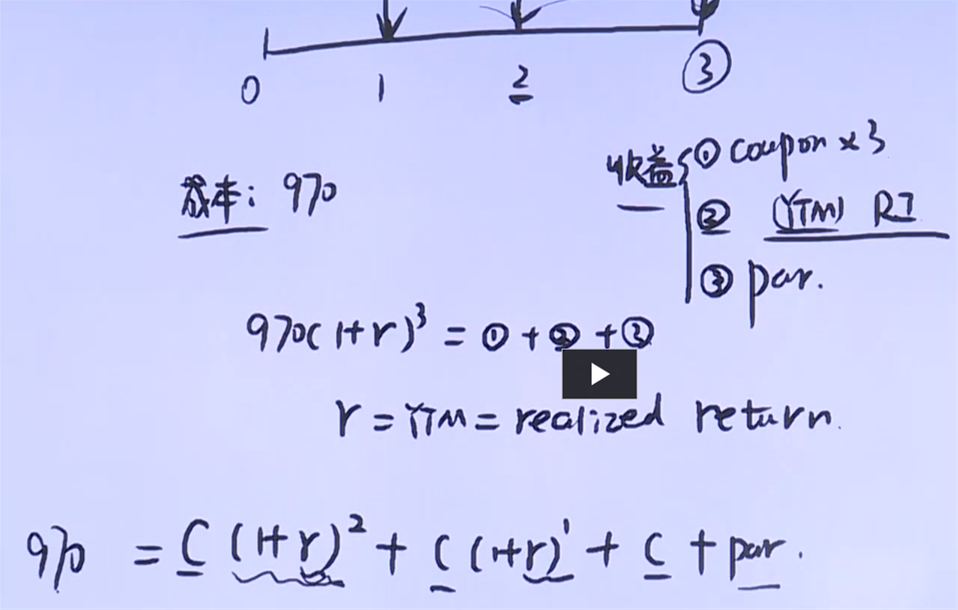 0 1 2 ③
成本: 970
收益 ① coupon × 3
② (YTM) RI
③ par.
970(1+r)³ = ① + ② + ③
r = YTM = realized return.
970 = C (1+r)² + C (1+r)¹ + C + par.